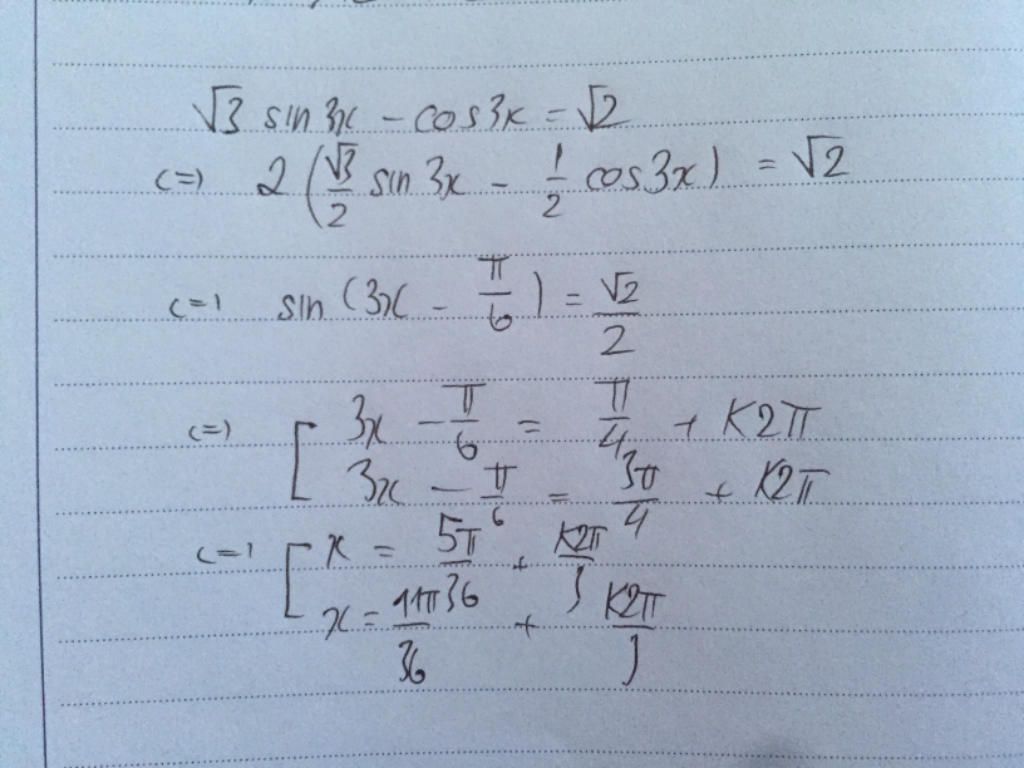 √3 sin 3x - cos3x = √2
<=> 2 (√3/2 sin 3x - 1/2 cos3x) = √2
<=> sin (3x - π/6) = √2/2
<=> [ 3x - π/6 = π/4 + K2π
3x - π/6 = 3π/4 + K2π
<=> [ x = 5π/36 + K2π/3
x = 11π/36 + K2π/3